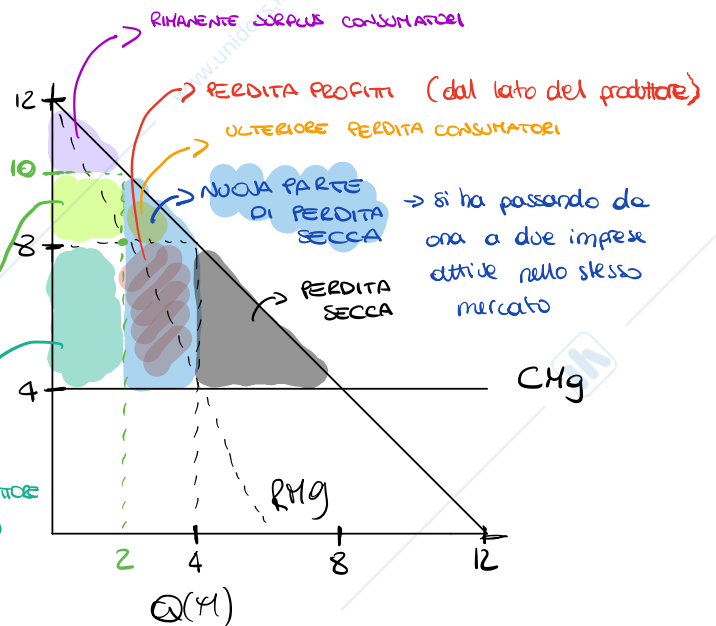 RIMANENTE SURPLUS CONSUMATORI
12
PERDITA PROFITTI (dal lato del produttore)
ULTERIORE PERDITA CONSUMATORI
10
NUOVA PARTE
DI PERDITA
SECCA
→ si ha passando da
una a due imprese
attive nello stesso
mercato
8
PERDITA
SECCA
4
CMg
RMg
2
4
8
12
Q(M)